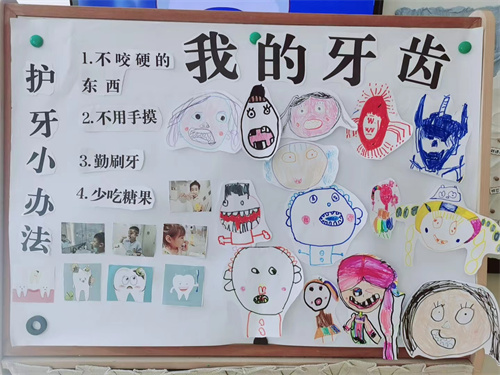 我的牙齿
护牙小办法
1.不咬硬的
东西
2.不用手摸
3.勤刷牙
4.少吃糖果